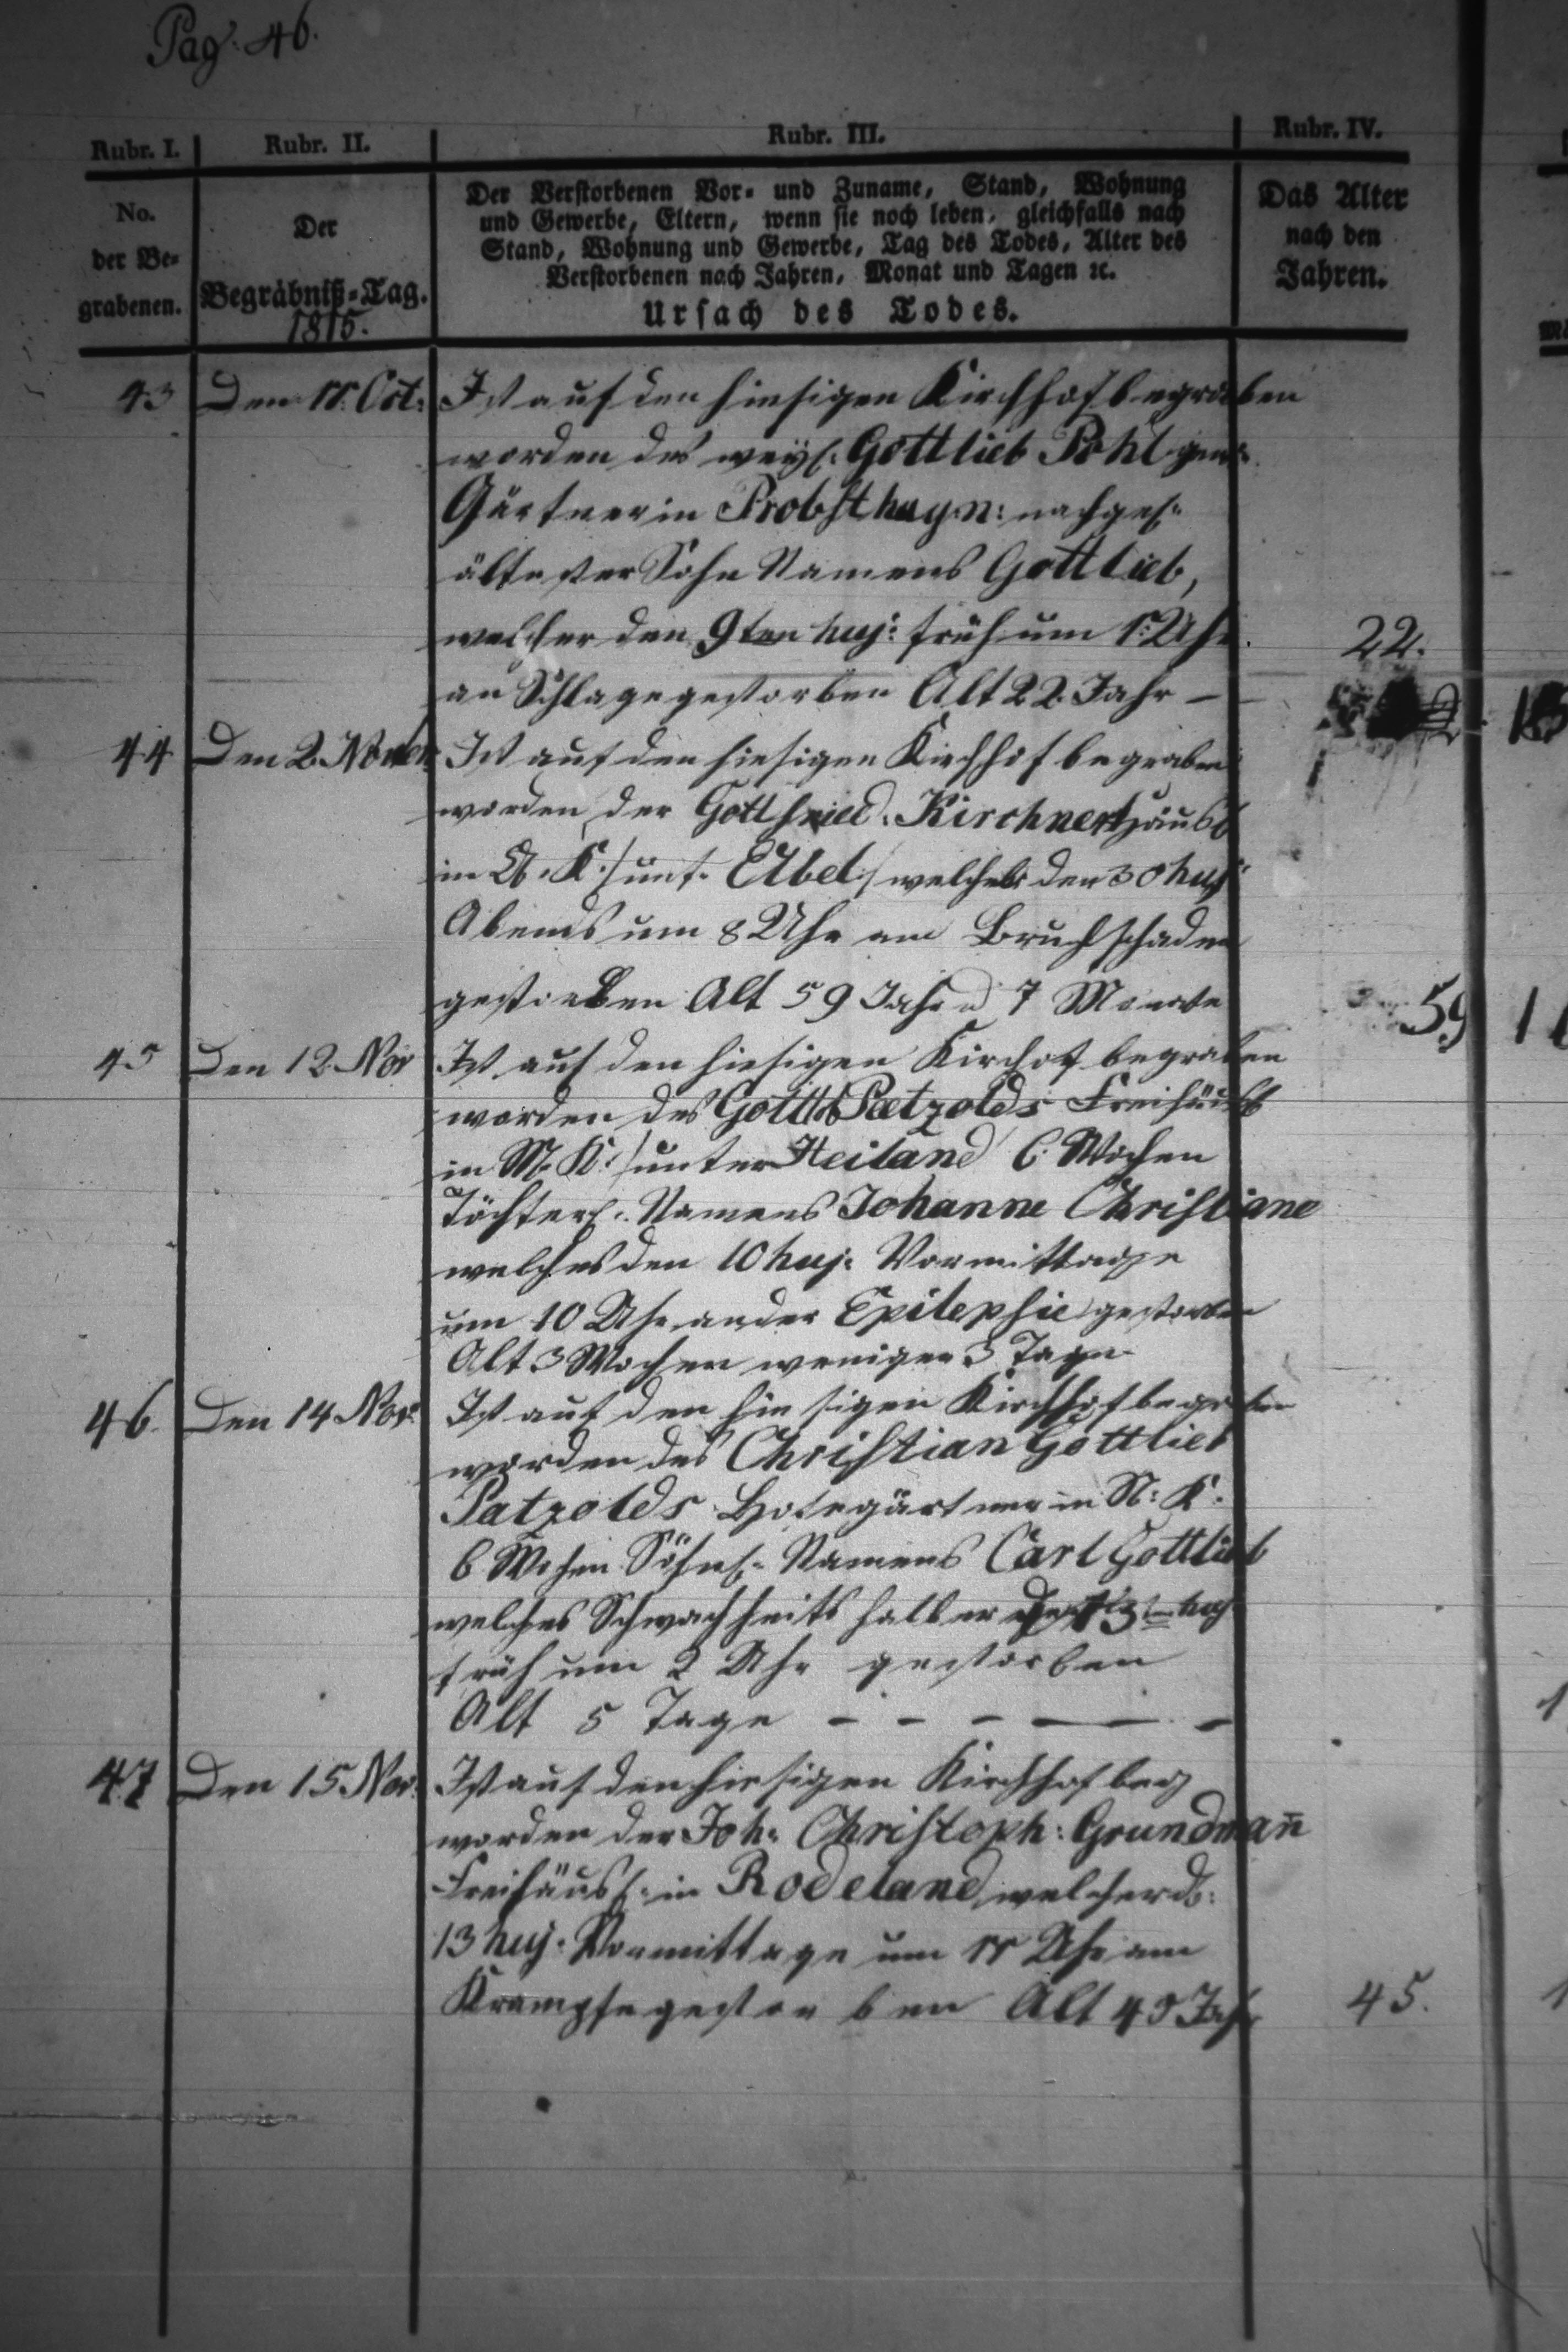 Pag: 46.
Rubr. I.
Rubr. II.
Rubr. III.
Rubr. IV.
No.
der Be-
grabenen.
Der
Begräbniß-Tag.
1815.
Der Verstorbenen Vor- und Zuname, Stand, Wohnung
und Gewerbe, Eltern, wenn sie noch leben, gleichfalls nach
Stand, Wohnung und Gewerbe, Tag des Todes, Alter des
Verstorbenen nach Jahren, Monat und Tagen ꝛc.
Ursach des Todes.
Das Alter
nach den
Jahren.
43 Den 11. Oct: Ist auf den hiesigen Kirchhof begraben
worden des weyl. Gottlieb Pohl gew:
Gärtner in Probsthayn: nachgel:
ältester Sohn Namens Gottlieb,
welcher den 9ten huj: früh um 1. Uhr
an Schlage gestorben Alt 22. Jahr –
22.
44 Den 2. Novbr Ist auf den hiesigen Kirchhof begraben
worden der Gottfried Kirchner Häusl
in K: /unt. Elbel/ welcher den 30 huj:
Abends um 8 Uhr am Bruchschaden
gestorben Alt 59 Jahr u 7 Monate
59
45 Den 12 Nov Ist auf den hiesigen Kirchof begraben
worden des Gottlob Paetzolds Freihäusl
in M. K: /unter Heiland 6. Wochen
Töchterl. Namens Johanne Christiane
welches den 10 huj: Vormittage
um 10 Uhr an der Epilepsie gestorben
Alt 3 Wochen weniger 3 Tage
46. Den 14 Nov: Ist auf den hiesigen Kirchhof begraben
worden des Christian Gottlieb
Patzolds Hofegärtner in N: K.
6 Wochen Söhnl. Namens Carl Gottlieb
welches Schwachheits halber 13 huj
früh um 2 Uhr gestorben
Alt 5 Tage – – – — –
47 Den 15 Nov. Ist auf den hiesigen Kirchhof beg
worden der Joh: Christoph: Grundman̄
Freihäusl. in Rodeland welcher d:
13 huj. Vormittage um 11 Uhr am
Krampfe gestorben Alt 45 Jahr
45.